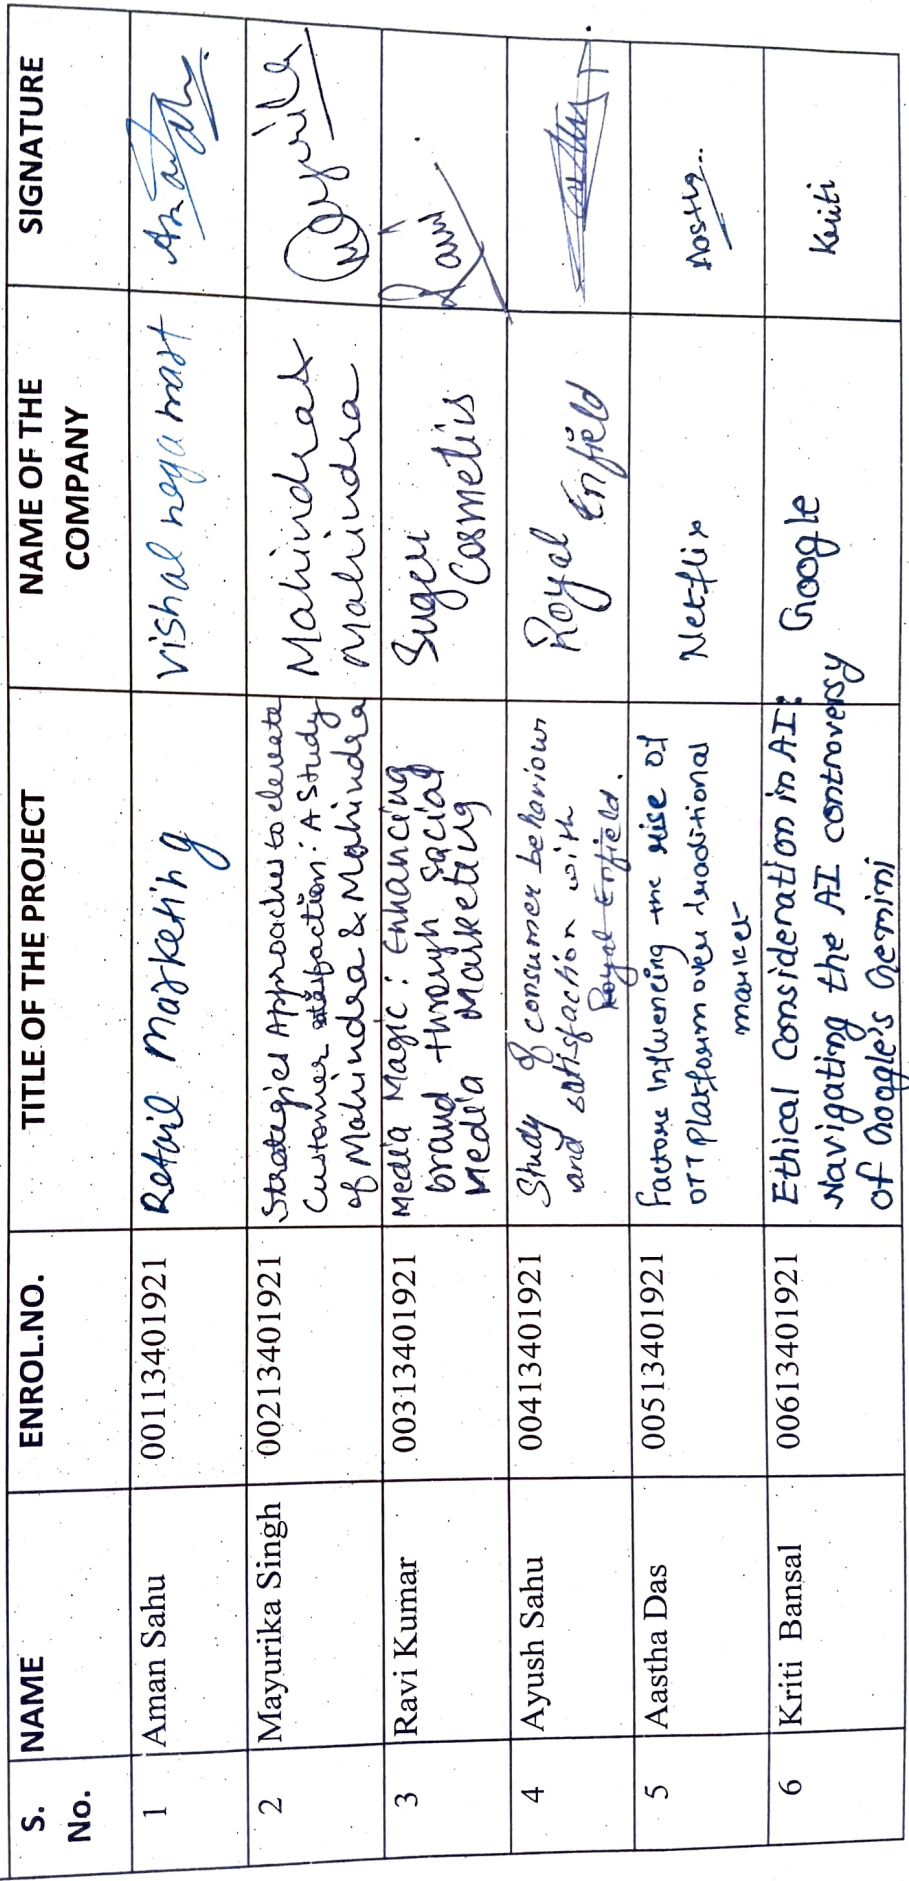 S. No. NAME ENROL.NO. TITLE OF THE PROJECT NAME OF THE COMPANY SIGNATURE
1 Aman Sahu 00113401921 Retail Marketing Vishal mega mart
2 Mayurika Singh 00213401921 Strategies Approaches to elevate
Customer satisfaction: A Study
of Mahindra & Mahindra
Mahindra &
Mahindra
Mayurika
3 Ravi Kumar 00313401921 Media Magic: Enhancing
brand through Social
Media Marketing
Sugar
Cosmetics
Ravi
4 Ayush Sahu 00413401921 Study of consumer behaviour
and satisfaction with
Royal Enfield.
Royal
Enfield
5 Aastha Das 00513401921 Factors Influencing the rise of
OTT Platform over traditional
market
Netflix
Aastha
6 Kriti Bansal 00613401921 Ethical Consideration in AI:
Navigating the AI controversy
of Google's Gemini
Google
Kriti